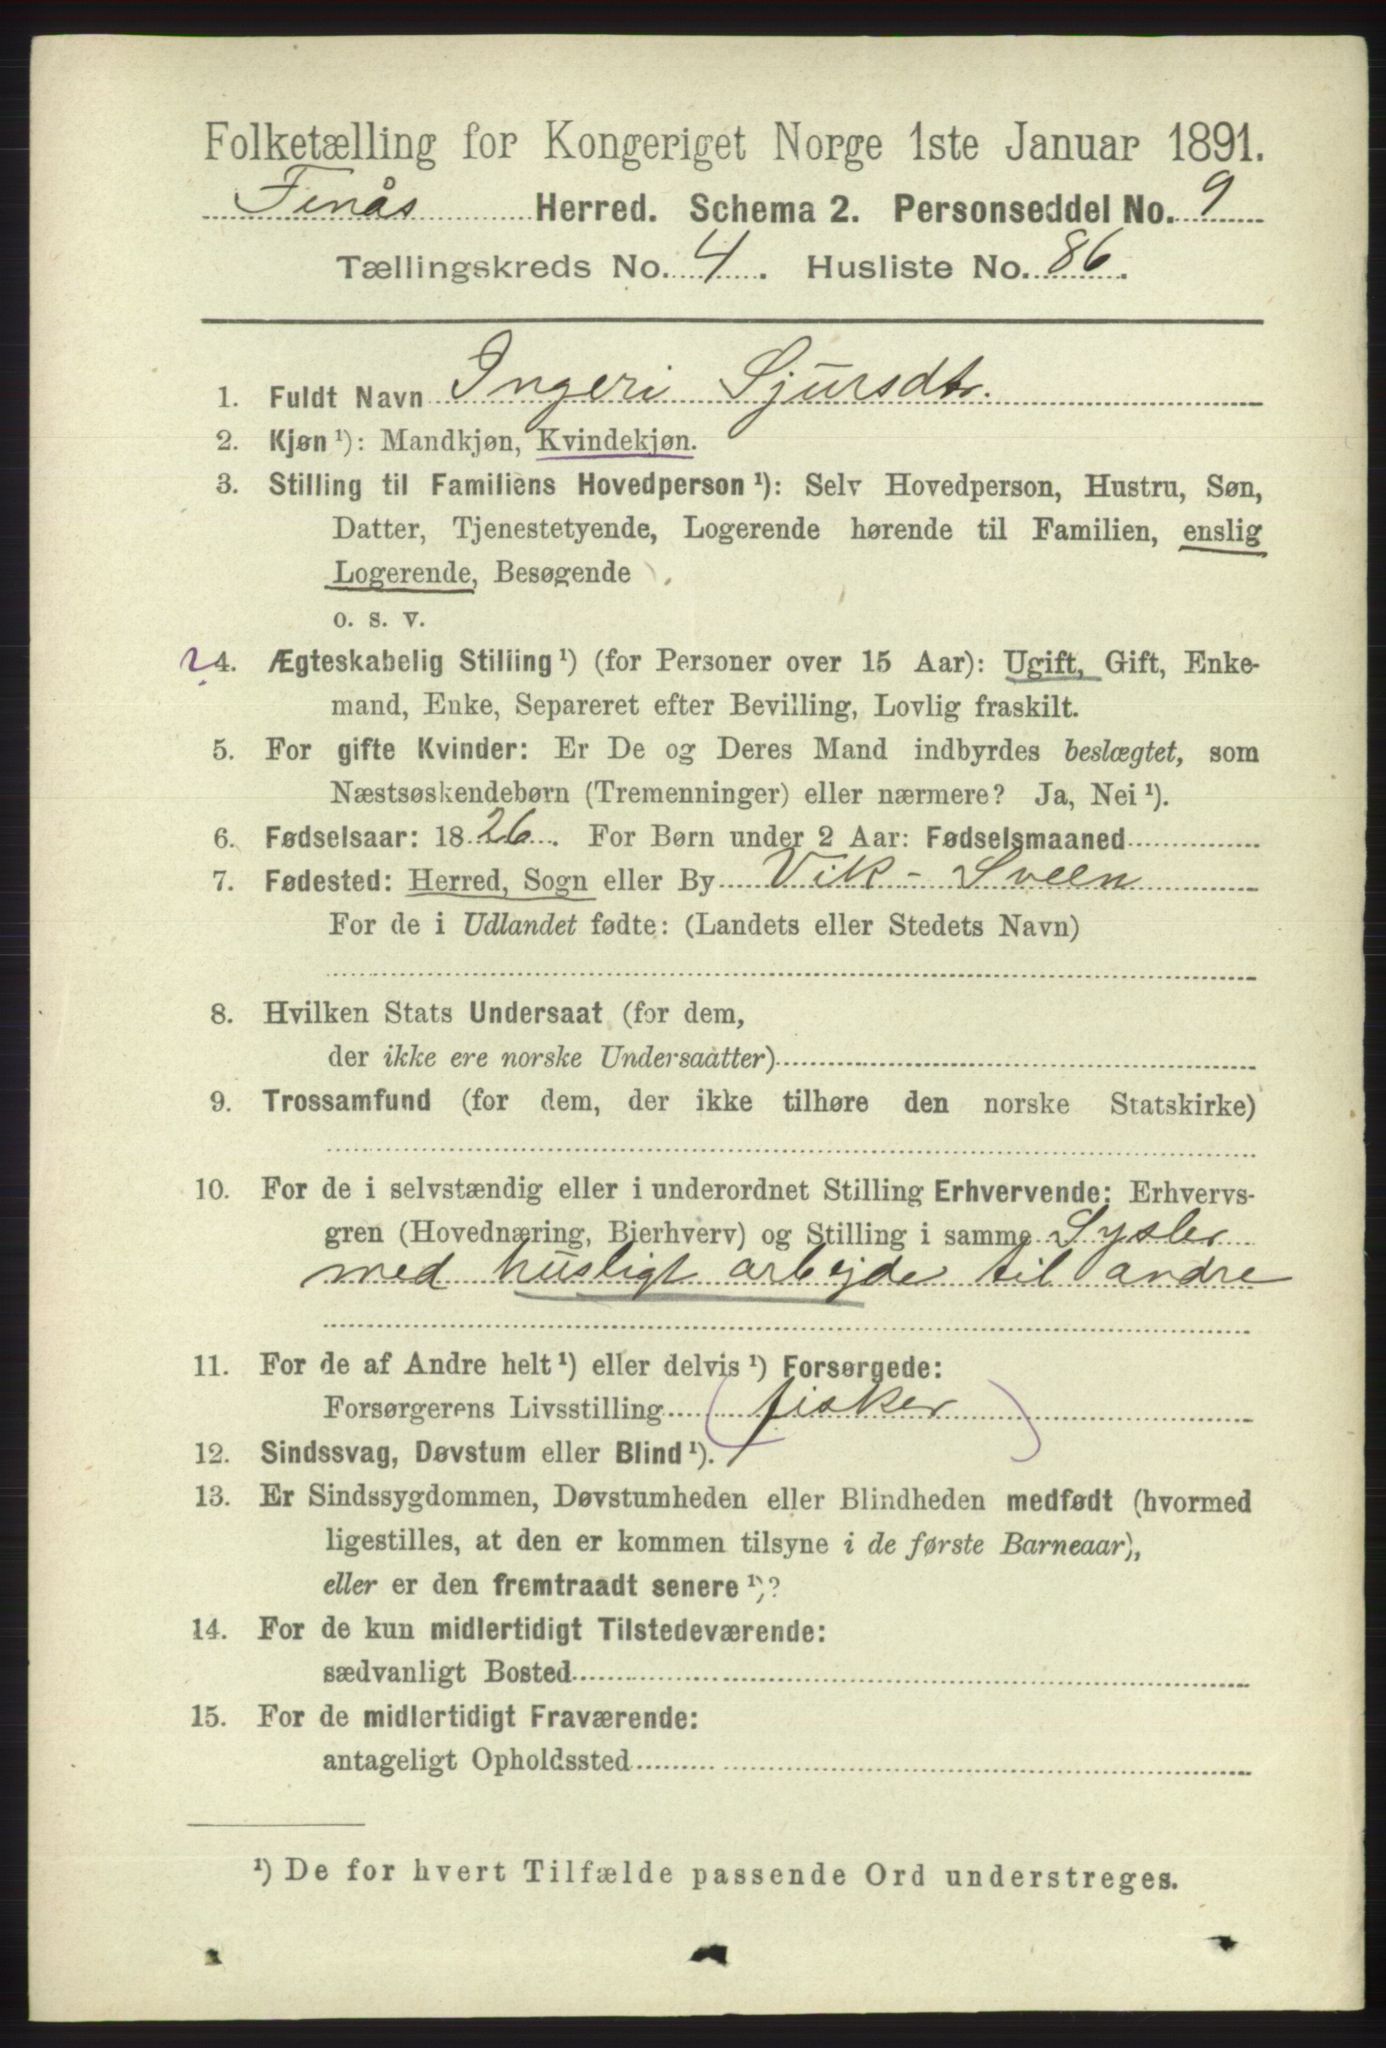 Folketælling for Kongeriget Norge 1ste Januar 1891.
Finås Herred. Schema 2. Personseddel No. 9
Tællingskreds No. 4. Husliste No. 86.
1. Fuldt Navn Ingeri Sjursdtr.
2. Kjøn ¹): Mandkjøn, Kvindekjøn.
3. Stilling til Familiens Hovedperson ¹): Selv Hovedperson, Hustru, Søn,
Datter, Tjenestetyende, Logerende hørende til Familien, enslig
Logerende, Besøgende
o. s. v.
2 4. Ægteskabelig Stilling ¹) (for Personer over 15 Aar): Ugift, Gift, Enke-
mand, Enke, Separeret efter Bevilling, Lovlig fraskilt.
5. For gifte Kvinder: Er De og Deres Mand indbyrdes beslægtet, som
Næstsøskendebørn (Tremenninger) eller nærmere? Ja, Nei ¹).
6. Fødselsaar: 1826. For Børn under 2 Aar: Fødselsmaaned
7. Fødested: Herred, Sogn eller By Vik - Sveen
For de i Udlandet fødte: (Landets eller Stedets Navn)
8. Hvilken Stats Undersaat (for dem,
der ikke ere norske Undersaatter)
9. Trossamfund (for dem, der ikke tilhøre den norske Statskirke)
10. For de i selvstændig eller i underordnet Stilling Erhvervende: Erhvervs-
gren (Hovednæring, Bierhverv) og Stilling i samme Sysler
med husligt arbejde til andre
11. For de af Andre helt ¹) eller delvis ¹) Forsørgede:
Forsørgerens Livsstilling (fisker)
12. Sindssvag, Døvstum eller Blind ¹).
13. Er Sindssygdommen, Døvstumheden eller Blindheden medfødt (hvormed
ligestilles, at den er kommen tilsyne i de første Barneaar),
eller er den fremtraadt senere ¹)?
14. For de kun midlertidigt Tilstedeværende:
sædvanligt Bosted
15. For de midlertidigt Fraværende:
antageligt Opholdssted
¹) De for hvert Tilfælde passende Ord understreges.